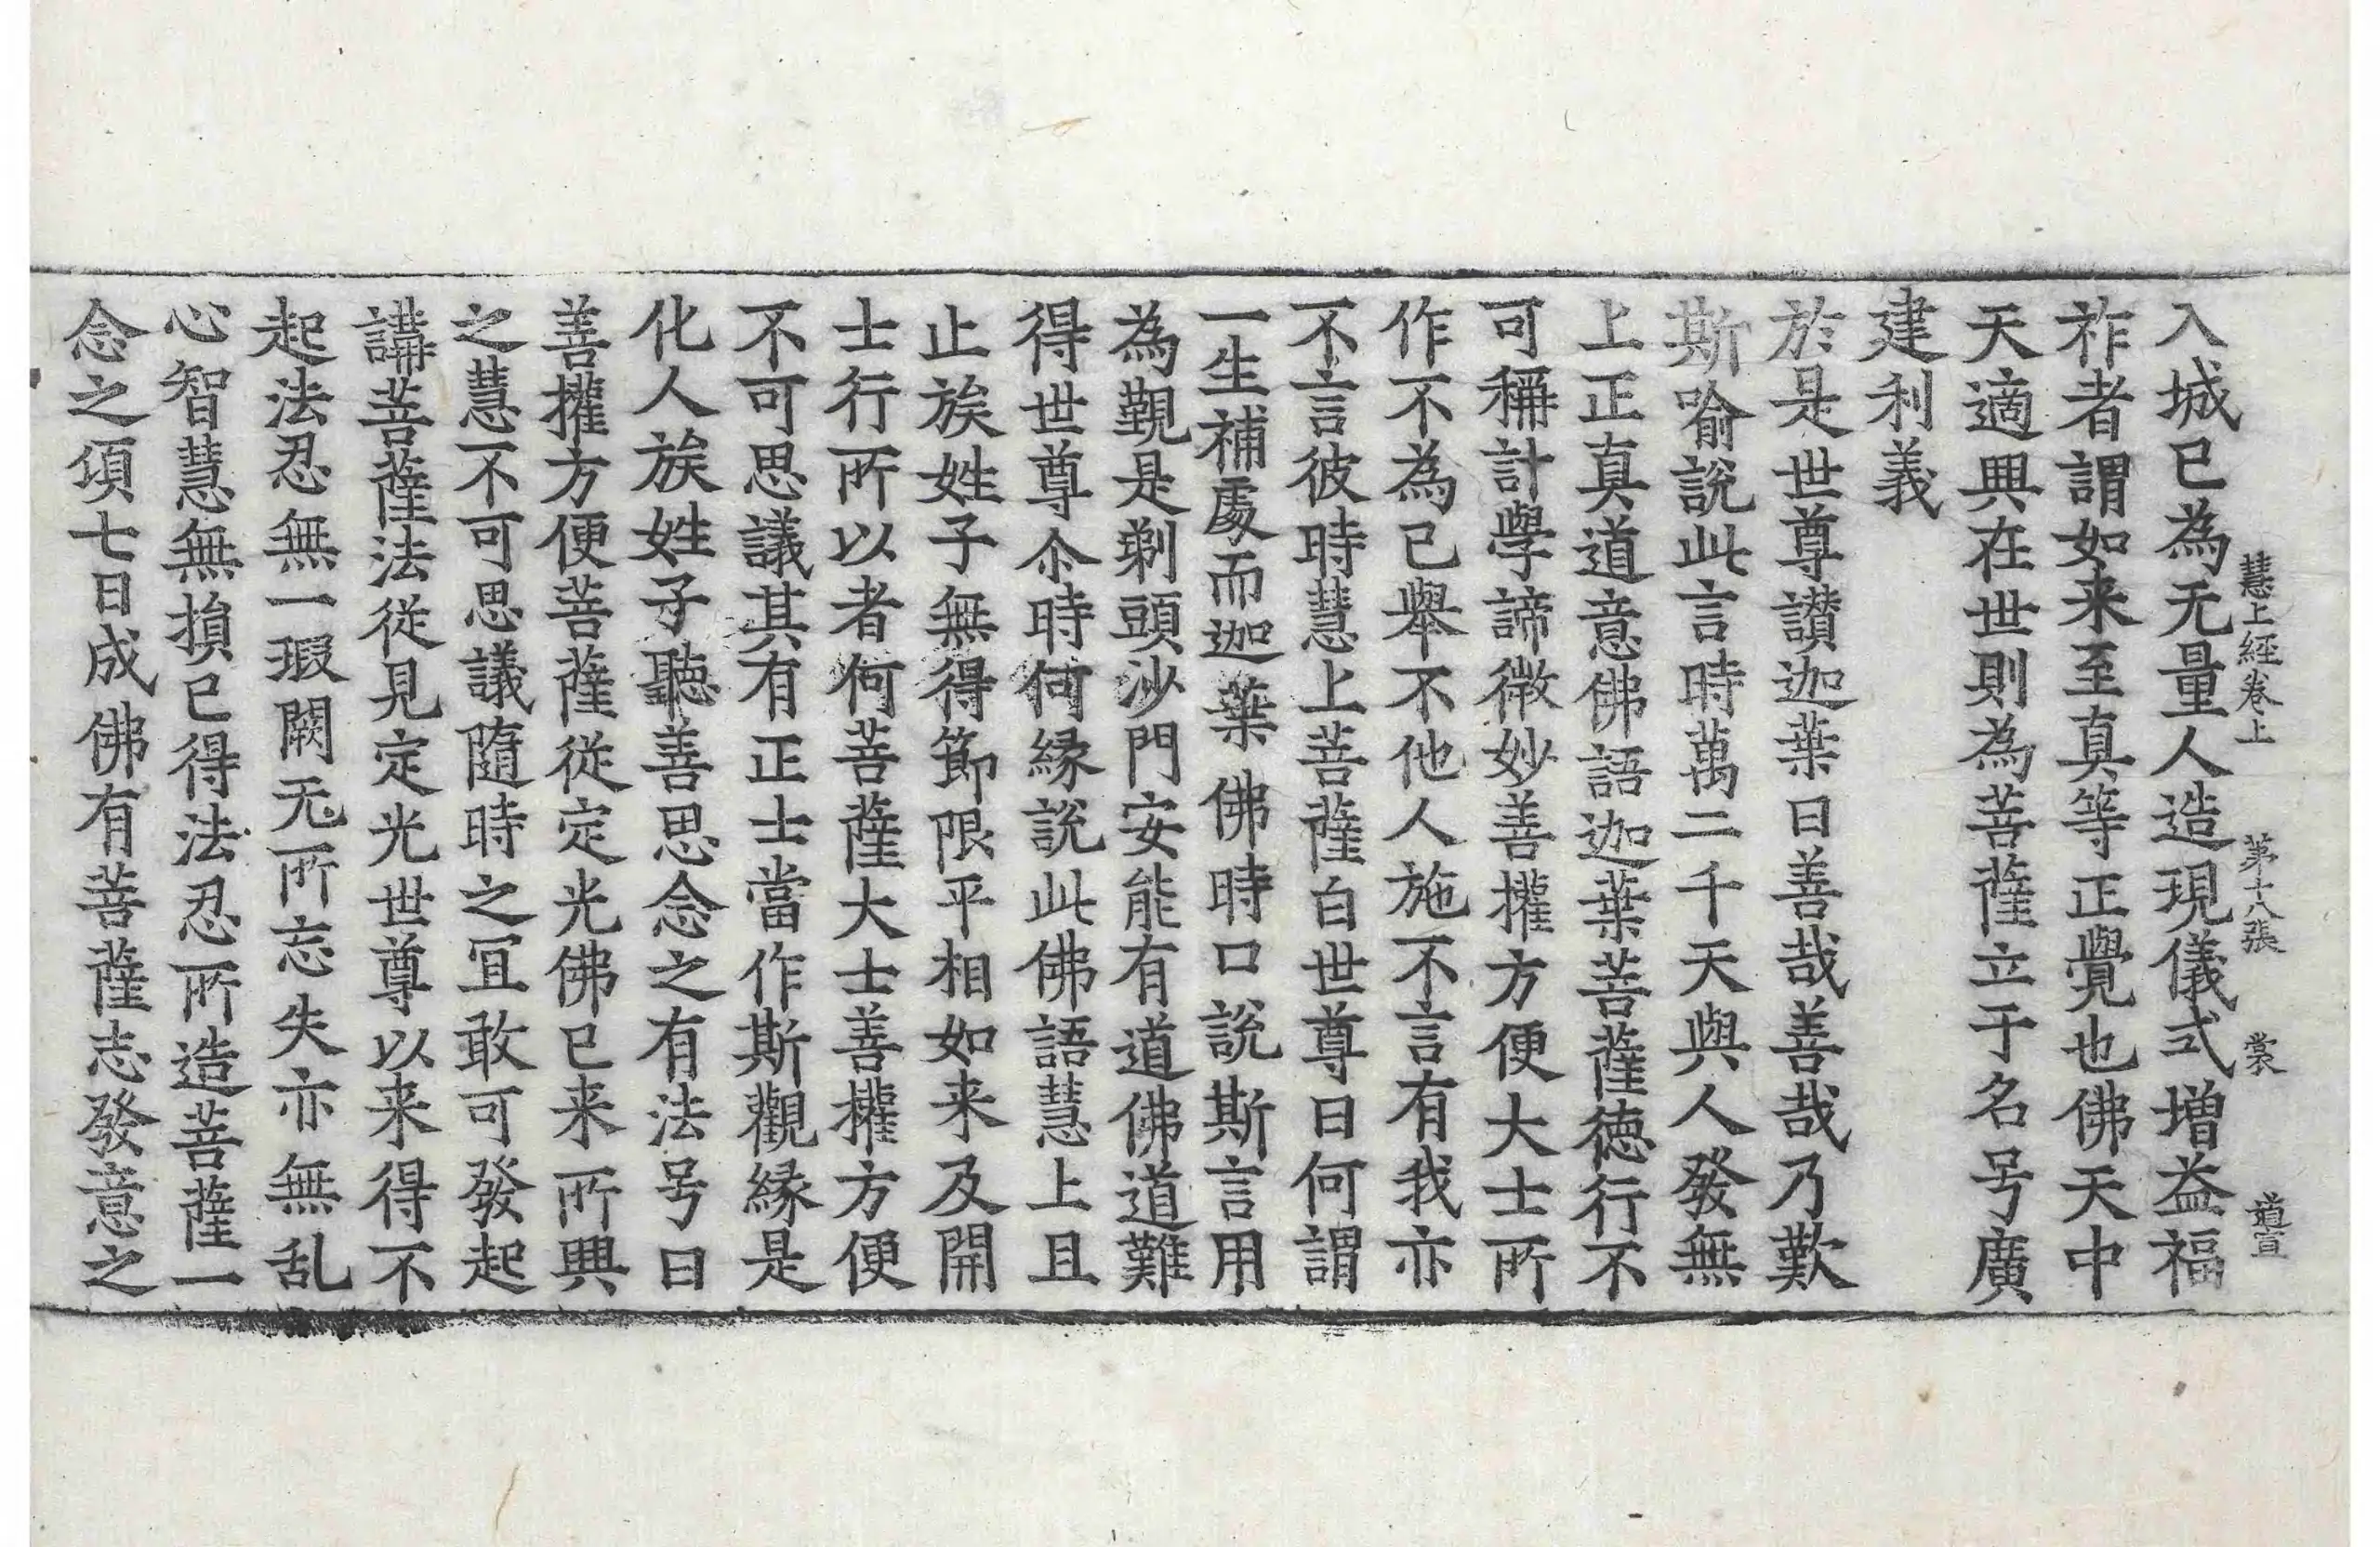 慧上經卷上　第十八張　裳　道宣
入城已為无量人造現儀式增益福
祚者謂如来至真等正覺也佛天中
天適興在世則為菩薩立于名号廣
建利義
於是世尊讃迦葉曰善哉善哉乃歎
斯喻說此言時萬二千天與人發無
上正真道意佛語迦葉菩薩德行不
可稱計學諦微妙善權方便大士所
作不為已舉不他人施不言有我亦
不言彼時慧上菩薩白世尊曰何謂
一生補處而迦葉佛時口說斯言用
為覲是剃頭沙門安能有道佛道難
得世尊尒時何緣說此佛語慧上且
止族姓子無得節限平相如来及開
士行所以者何菩薩大士善權方便
不可思議其有正士當作斯觀緣是
化人族姓子聽善思念之有法号曰
善權方便菩薩從定光佛已来所興
之慧不可思議隨時之冝敢可發起
講菩薩法從見定光世尊以来得不
起法忍無一瑕闕无所忘失亦無乱
心智慧無損已得法忍所造菩薩一
念之頃七日成佛有菩薩志發意之